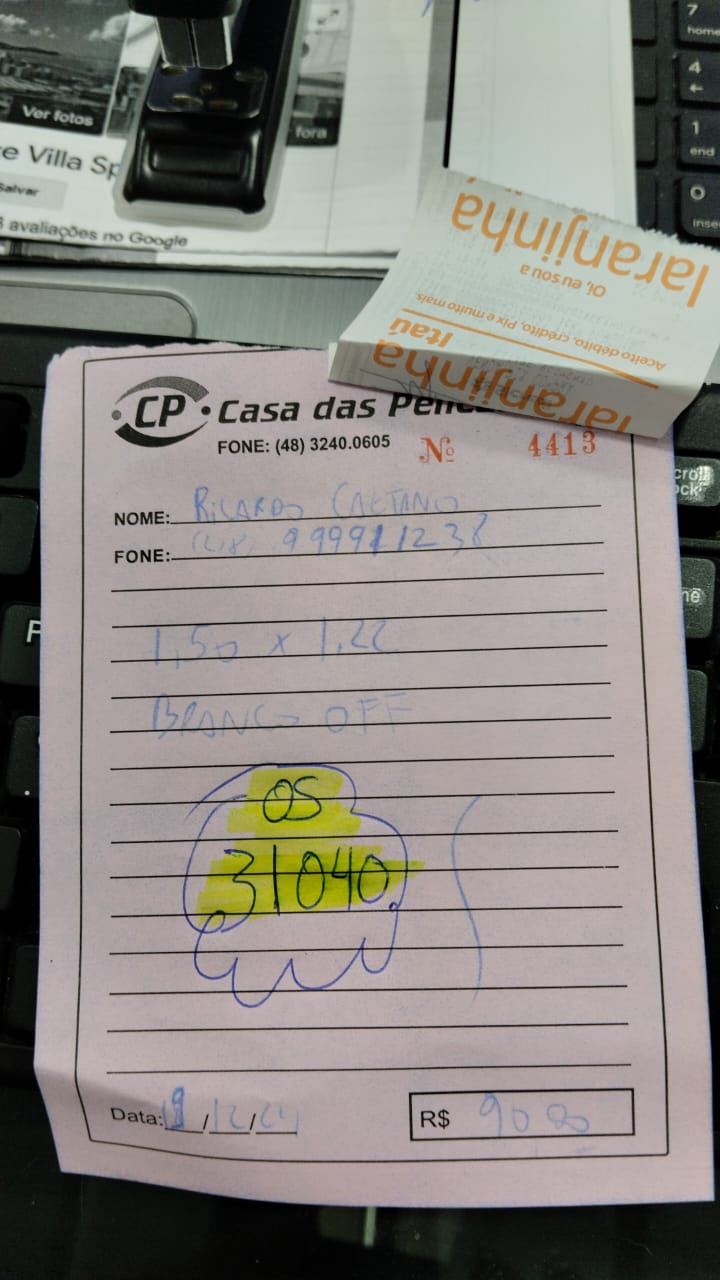 Ver fotos
fora
Salvar
avaliações no Google
7
home
4
←
1
end
0
laranjinha
Oi, eu sou a
Aceito débito, crédito, Pix e muito mais.
Itaú
laranjinha
laranjinha
CP Casa das
FONE: (48) 3240.0605
Nº 4413
NOME: RICARDO CAETANO
FONE: (48) 999911238
1,50 x 1,22
BRANCO OFF
OS
31040
Data: /12/24
R$ 90 00